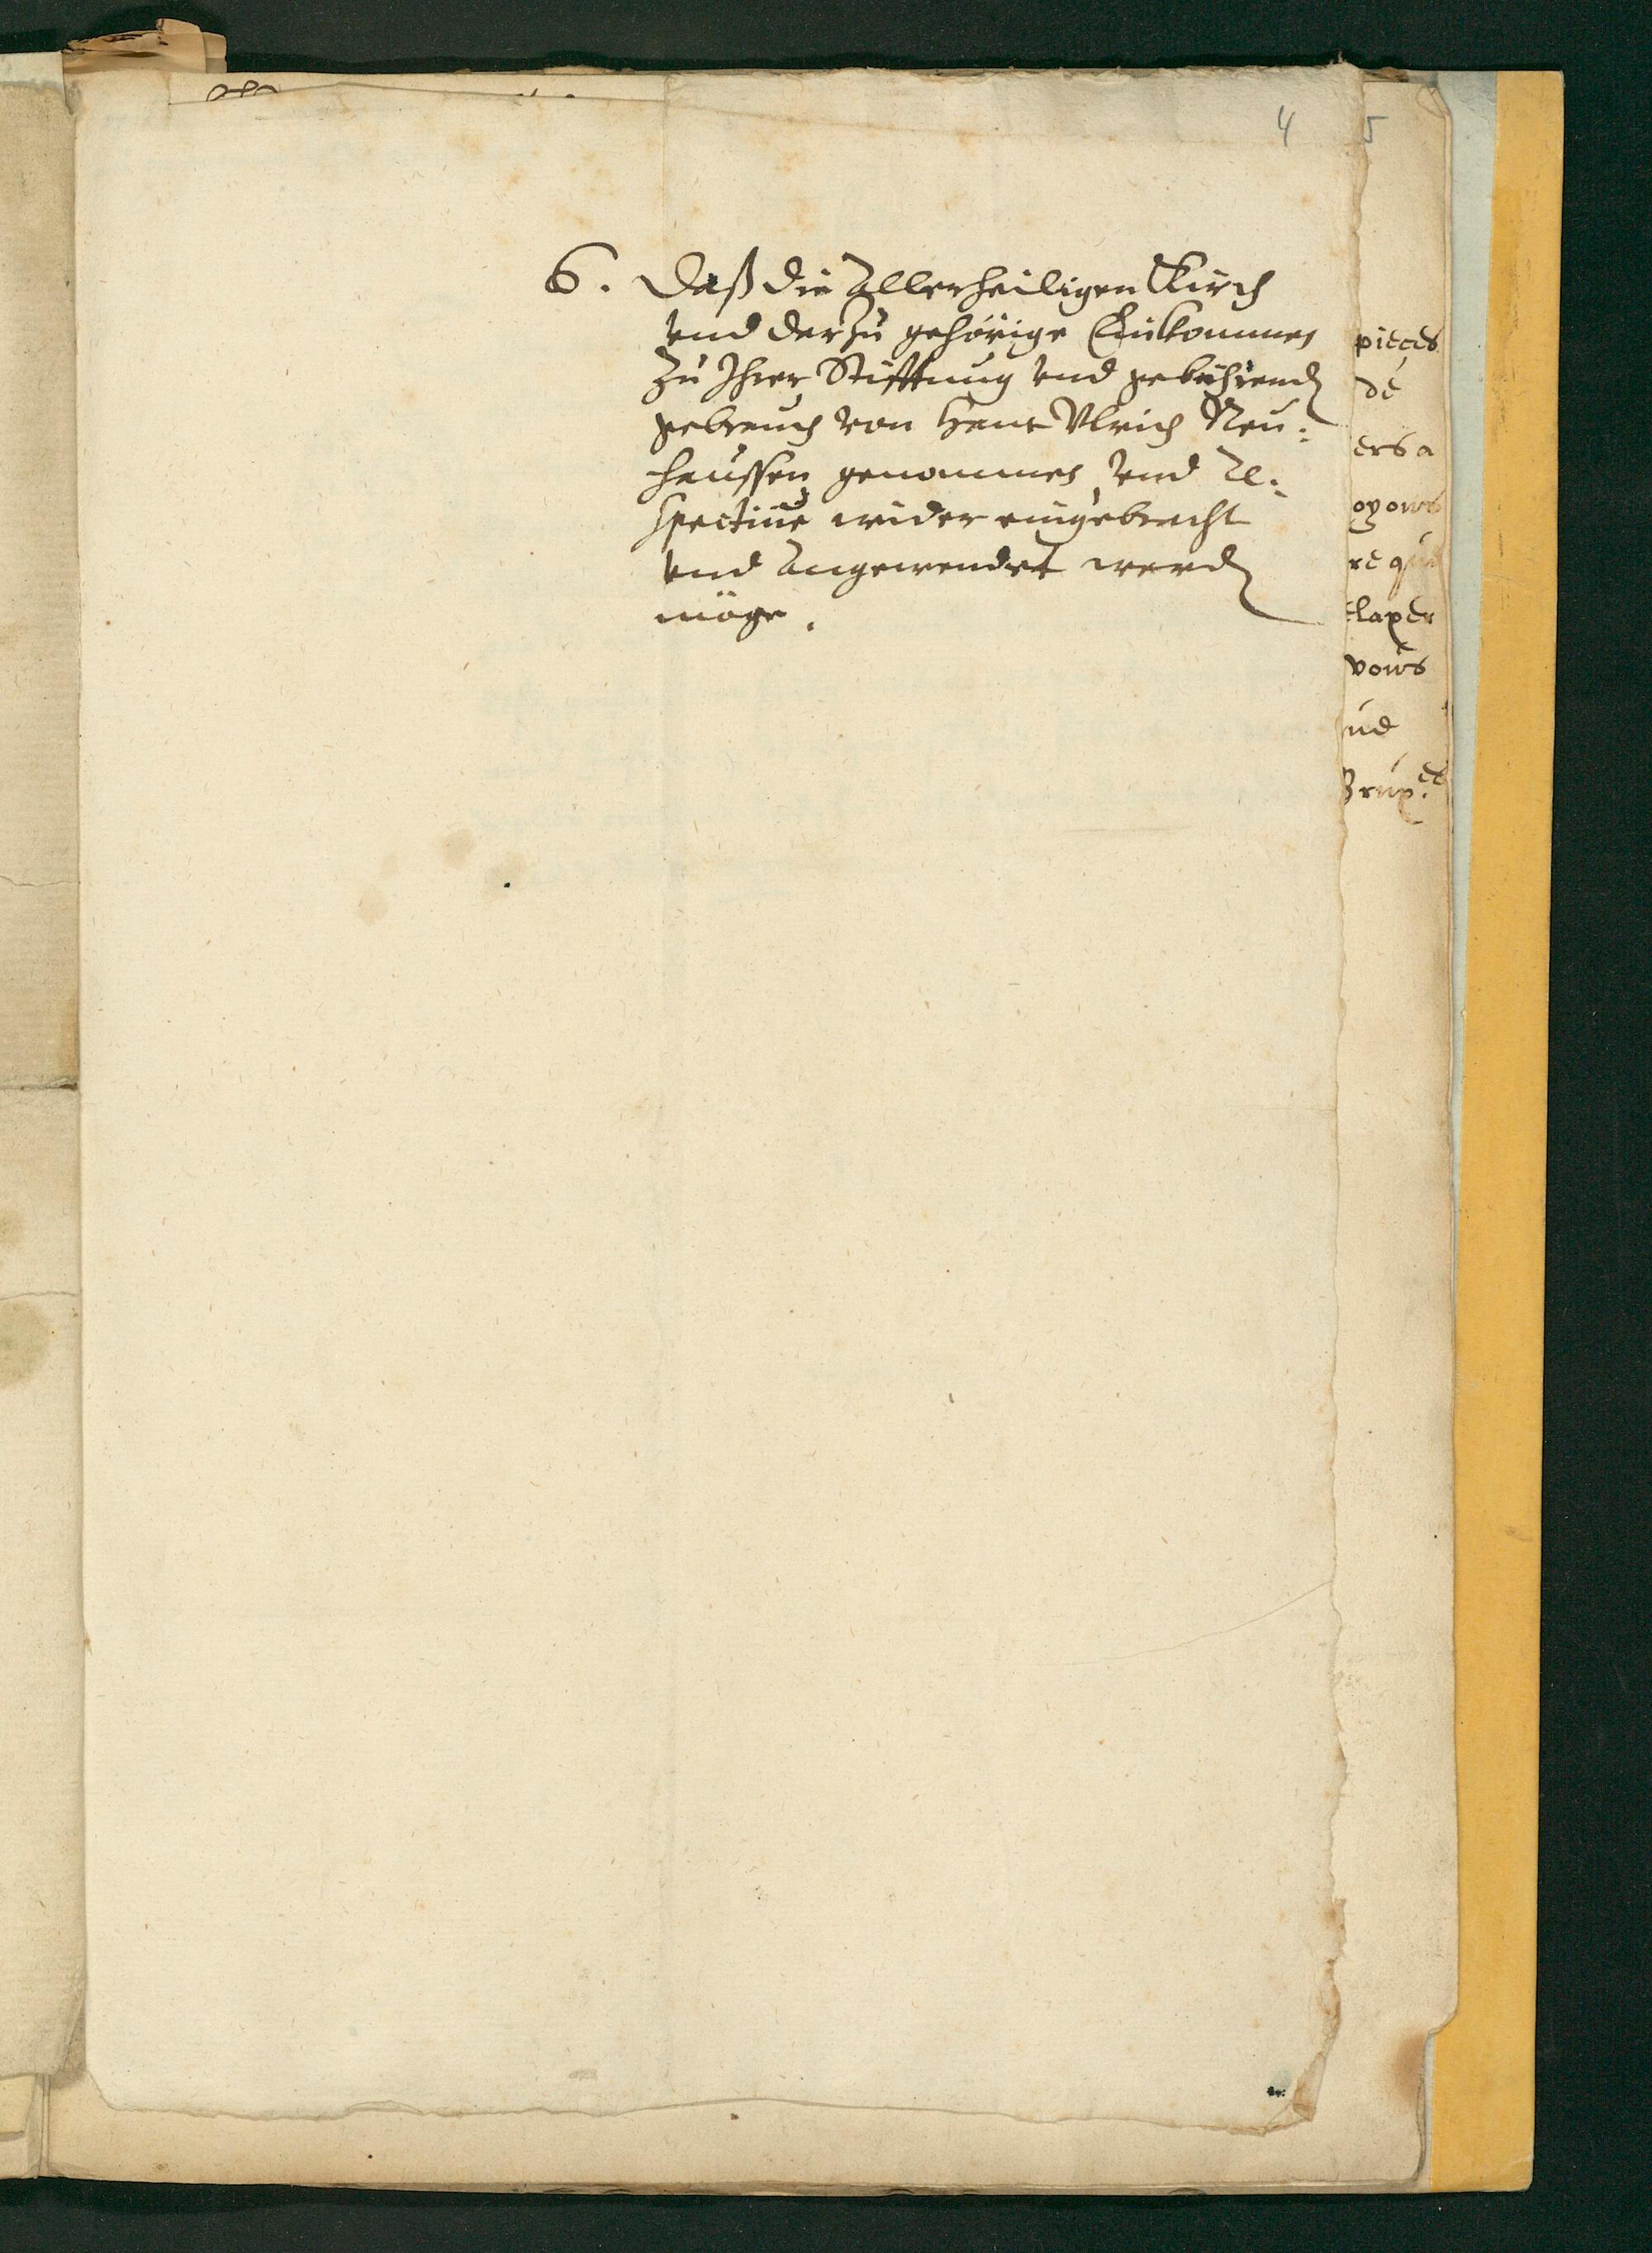 4
5
6. Daß die Allerheiligen Kirch
vnd darzu gehörige Einkommen
zu Ihrer Stifftung vnd gebührend
gebrauch von Hans Vlrich Neu:
haussen genommen, vnd Re:
spectiue wider eingebracht
vnd angewendet werd
möge.
pieces
de
ers a
oyons
re que
elaper
vous